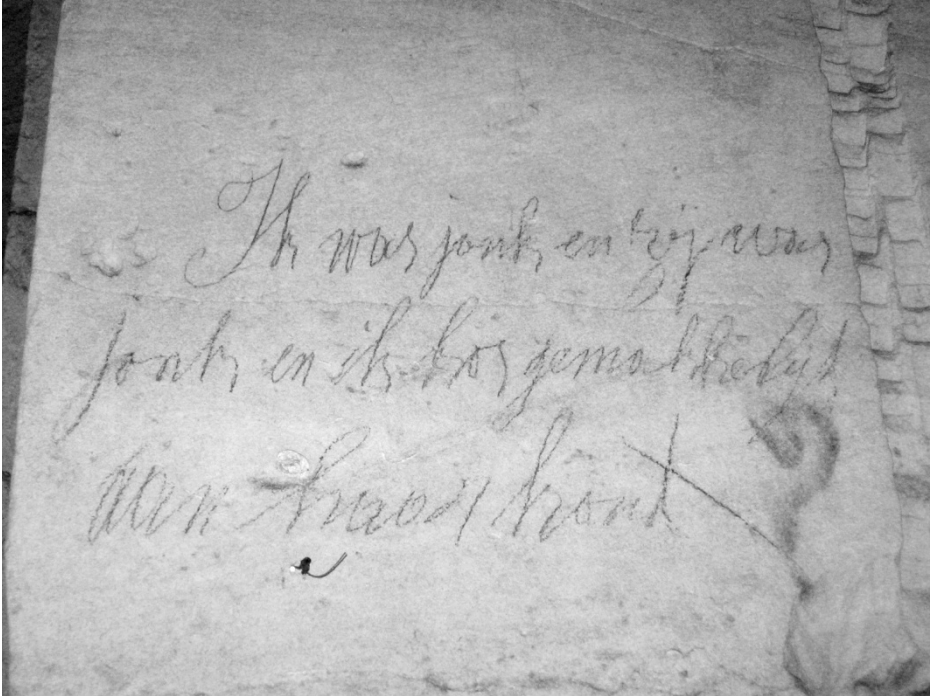 Ik was jonk en zij was
jonk en ik kos gemakkelijk
aan haar kont